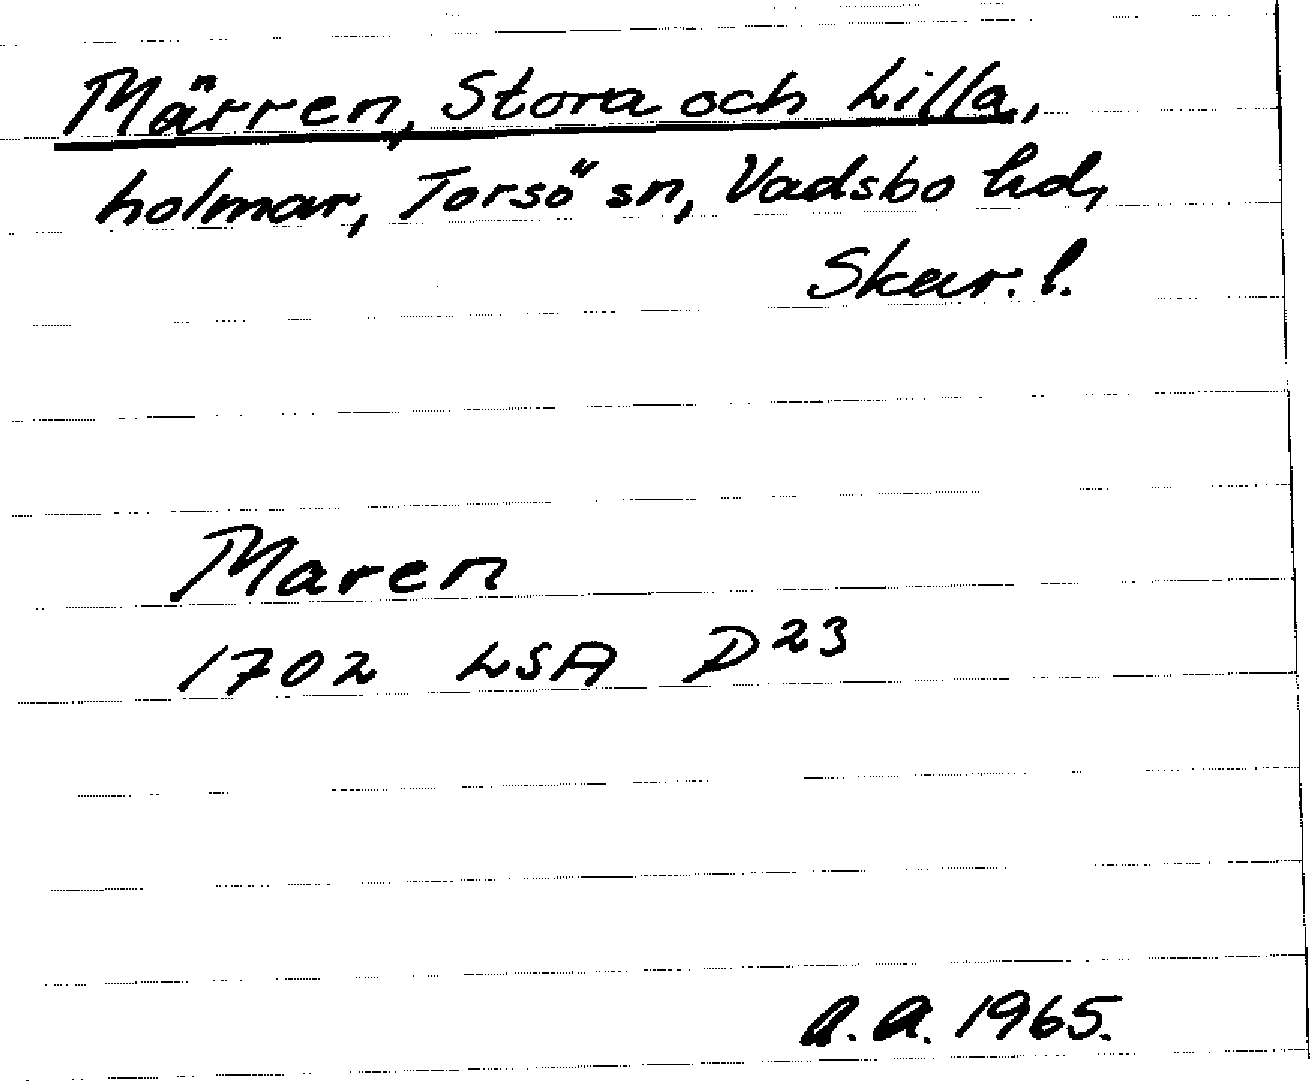 Märren, Stora och Lilla,
holmar, Torsö sn, Vadsbo hd,
Skar. l.
Maren
1702 LSA D23
A.A. 1965.